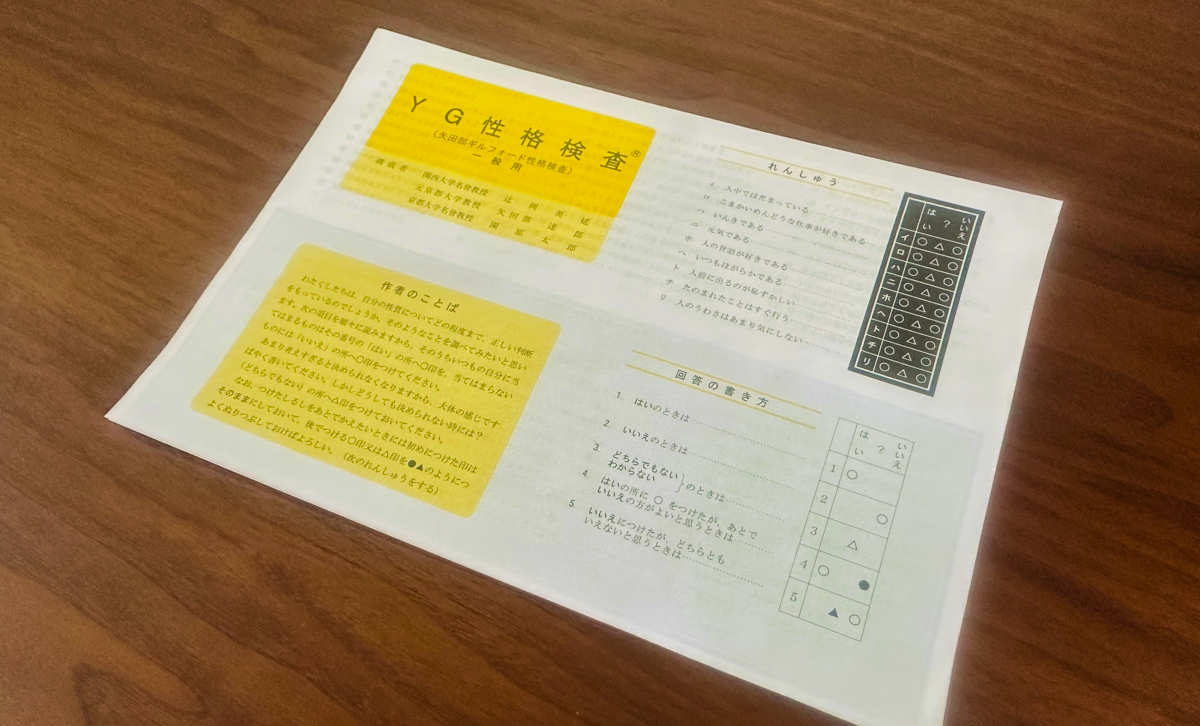 YG性格検査®
(矢田部ギルフォード性格検査)
一般用
構成者 関西大学名誉教授 辻岡美延
元京都大学教授 矢田部達郎
京都大学名誉教授 園原太郎
作者のことば
わたくしたちは、自分の性質についてどの程度まで、正しい判断
をもっているのでしょうか。そのようなことを調べてみたいと思い
ます。次の項目を順々に読みますから、そのうちいつもの自分に当
てはまるものはその番号の「はい」の所へ〇印を、当てはまらない
ものには「いいえ」の所へ〇印をつけてください。
あまり考えすぎると決められなくなりますから、大体の感じです
ばやく書いてください。しかしどうしても決められない時には?
(どちらでもない)の所へ△印をつけておいてください。
なお、つけたしるしをあとでかえたいときには初めにつけた印は
そのままにしておいて、後でつける〇印又は△印を●▲のようにつ
よくぬりつぶしておけばよろしい。(次のれんしゅうをする)
れんしゅう
イ 人中ではだまっている
ロ こまかいめんどうな仕事が好きである
ハ いんきである
ニ 元気である
ホ 人の世話が好きである
ヘ いつもほがらかである
ト 人前に出るのが恥ずかしい
チ たのまれたことはすぐ行う
リ 人のうわさはあまり気にしない
はい ? いいえ
イ 〇 △ 〇
ロ 〇 △ 〇
ハ 〇 △ 〇
ニ 〇 △ 〇
ホ 〇 △ 〇
ヘ 〇 △ 〇
ト 〇 △ 〇
チ 〇 △ 〇
リ 〇 △ 〇
回答の書き方
1. はいのときは
2. いいえのときは
3. どちらでもない
わからない }のときは
4. はいの所に 〇 をつけたが、あとで
いいえの方がよいと思うときは
5. いいえにつけたが、どちらとも
いえないと思うときは
はい ? いいえ
1 〇
2 〇
3 △
4 〇 ●
5 ▲ 〇